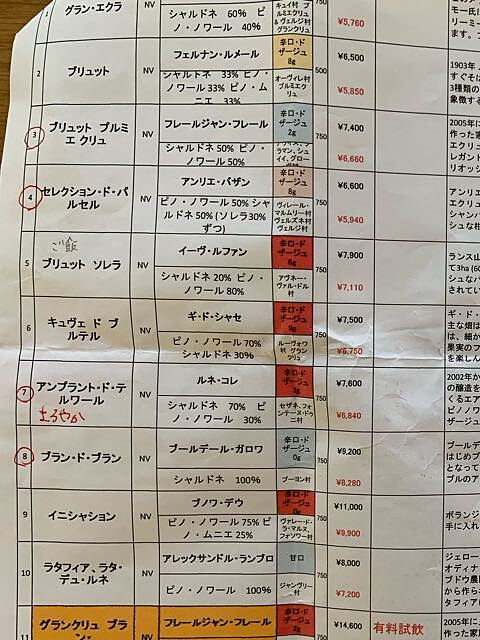 グラン・エクラ
NV
シャルドネ 60% ピ
ノ・ノワール 40%
キュイ村 プ
ルミエクリュ
& ヴェルジ村
グランクリュ
¥5,760
2
ブリュット
NV
フェルナン・ルメール
シャルドネ 33% ピノ・
ノワール 33% ピノ・ム
ニエ 33%
辛口・ド
ザージュ
8g
オーヴィレ村
プルミエク
リュ
500
¥6,500
¥5,850
1903年
3
ブリュット プルミ
エ クリュ
NV
フレールジャン・フレール
シャルドネ 50% ピノ・
ノワール 50%
辛口・ド
ザージュ
2g
750
¥7,400
¥6,660
2005年に
作った家
4
セレクション・ド・パ
ルセル
NV
アンリエ・バザン
ピノ・ノワール 50% シャ
ルドネ 50% (ソレラ30%
ずつ)
辛口・ド
ザージュ
8g
ヴィレール・
マルムリー村
ヴェルズネ村
ヴェルジ村
750
¥6,600
¥5,940
5
ブリュット ソレラ
NV
イーヴ・ルファン
シャルドネ 20% ピノ・
ノワール 80%
辛口・ド
ザージュ
8g
アヴネー・
ヴァル・ドル
村
750
¥7,900
¥7,110
ランス山
て3ha (60
6
キュヴェ ド ブ
ルテル
NV
ギ・ド・シャセ
ピノ・ノワール 70%
シャルドネ 30%
辛口・ド
ザージュ
9g
ルーヴォワ
村 グラン
クリュ
750
¥7,500
¥6,750
ギ・ド・
主な畑は
7
アンプラント・ド・テ
ルワール
まろやか
NV
ルネ・コレ
シャルドネ 70% ピ
ノ・ノワール 30%
辛口・ド
ザージュ
セザネ、フォ
ンテーヌ・ドゥ
ニ村
750
¥7,600
¥6,840
2002年か
の醸造を
8
ブラン・ド・ブラン
NV
プールデール・ガロワ
シャルドネ 100%
辛口・ド
ザージュ
0g
プーヨン村
750
¥9,200
¥8,280
9
イニシャション
NV
ブノワ・デウ
ピノ・ノワール 75% ピ
ノ・ムニエ 25%
辛口・ド
ザージュ
ヴァレー・ド・
ラ・マルヌ、
フォソワー村
750
¥11,000
¥9,900
手に入れ
10
ラタフィア、ラタ・
デュ・ルネ
NV
アレックサンドル・ランブロ
ピノ・ノワール 100%
甘口
ジャンヴリー
村
750
¥8,000
¥7,200
ジェロー
オディナ
ブドウ農
から作ら
11
グランクリュ ブラ
NV
フレールジャン・フレール
辛口・ド
ザージュ
¥14,600
有料試飲
2005年に
作った家